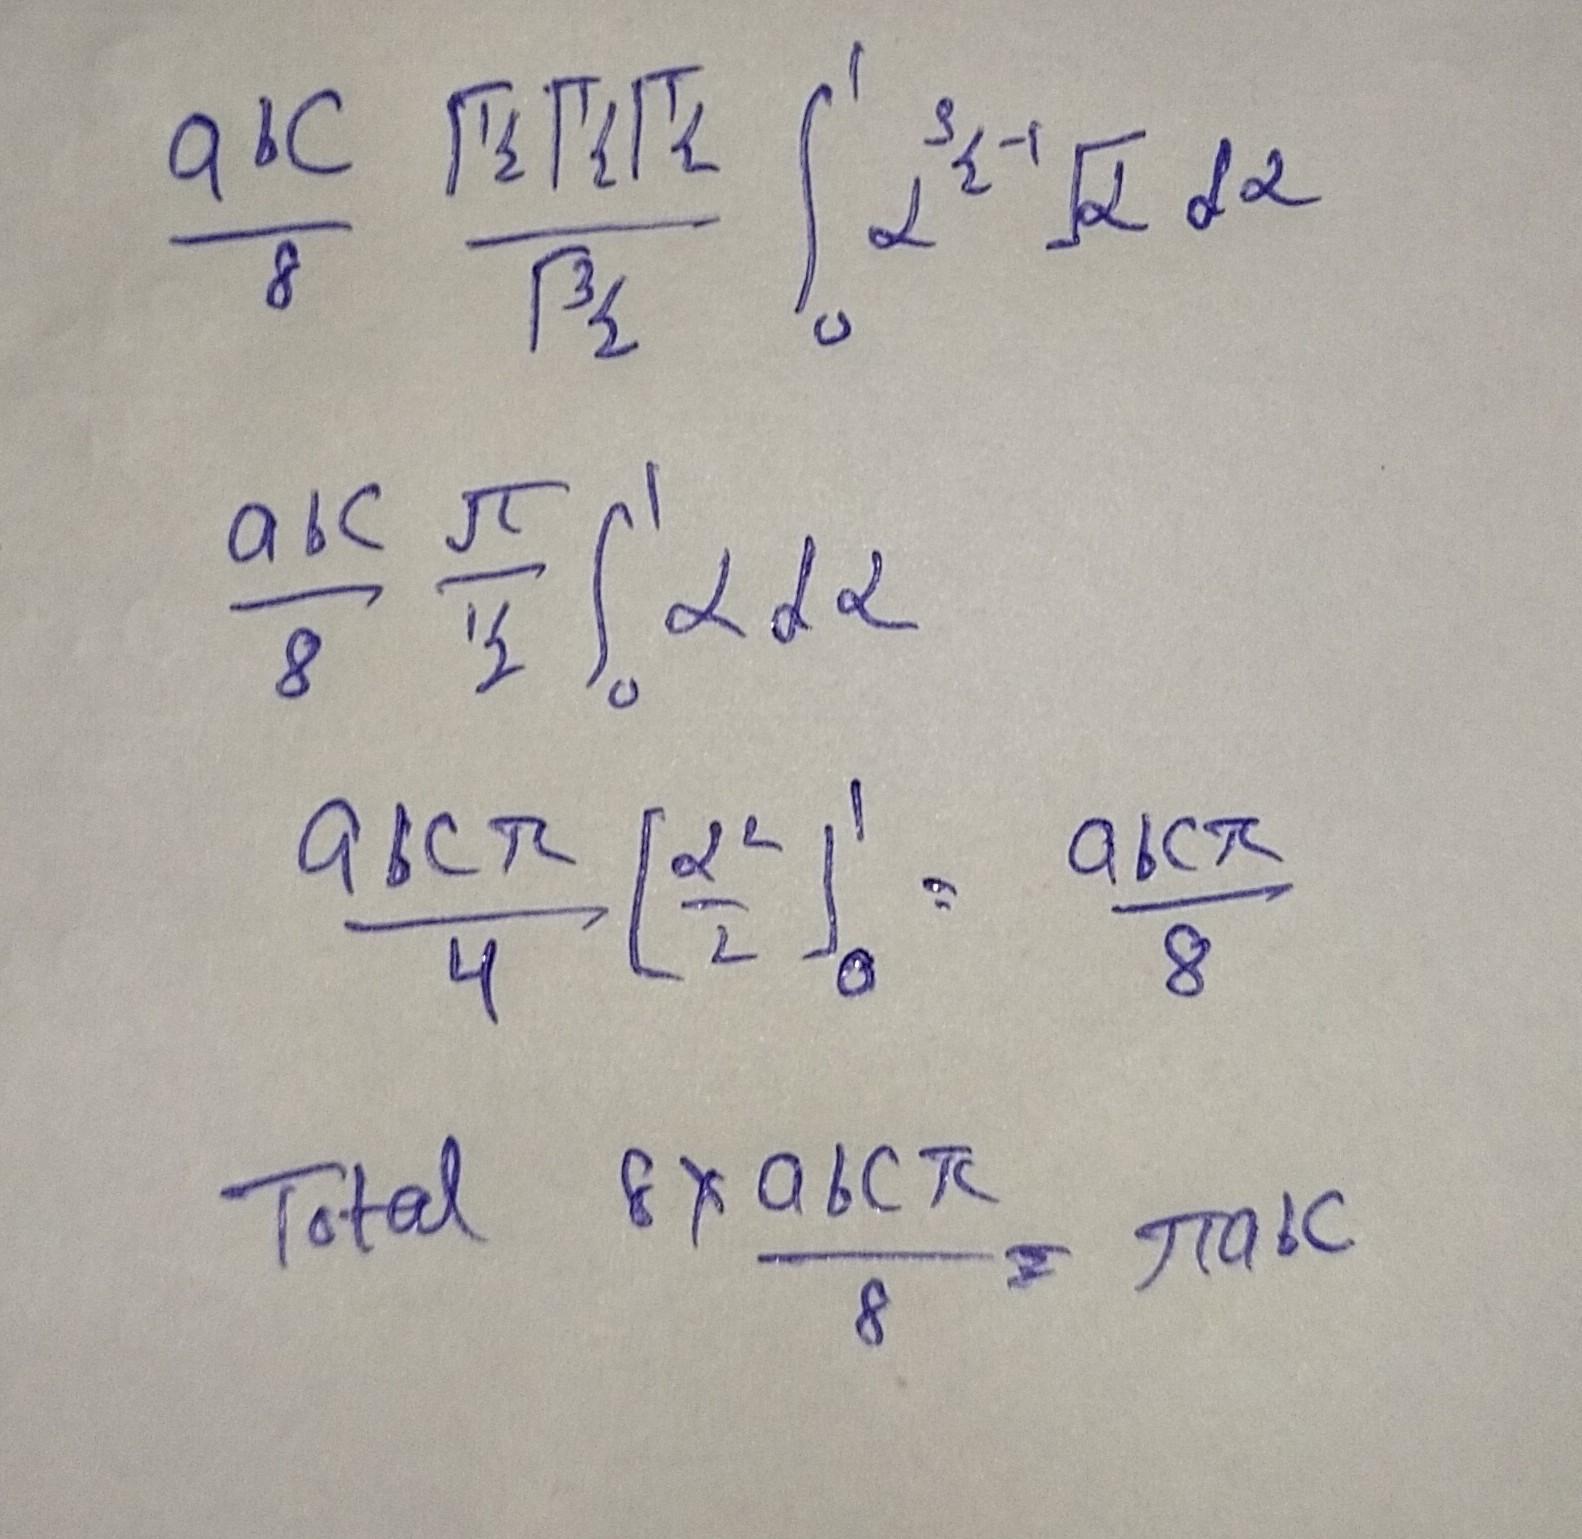 abc/8 Γ½ Γ½ Γ½ / Γ3/2 ∫₀¹ α^(3/2-1) √α dα
abc/8 π/½ ∫₀¹ α dα
abcπ/4 [α²/2]₀¹ = abcπ/8
Total 8 × abcπ/8 = πabc